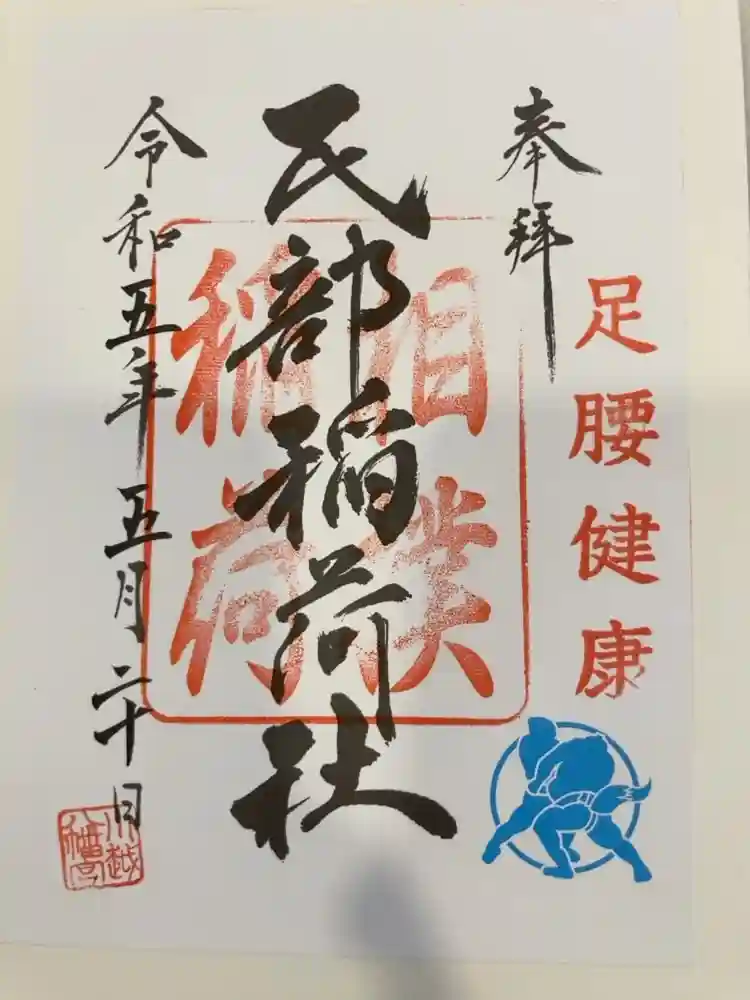 奉拝
足腰健康
民部稲荷社
相撲
稲荷
令和五年五月二十日
川越
八幡宮